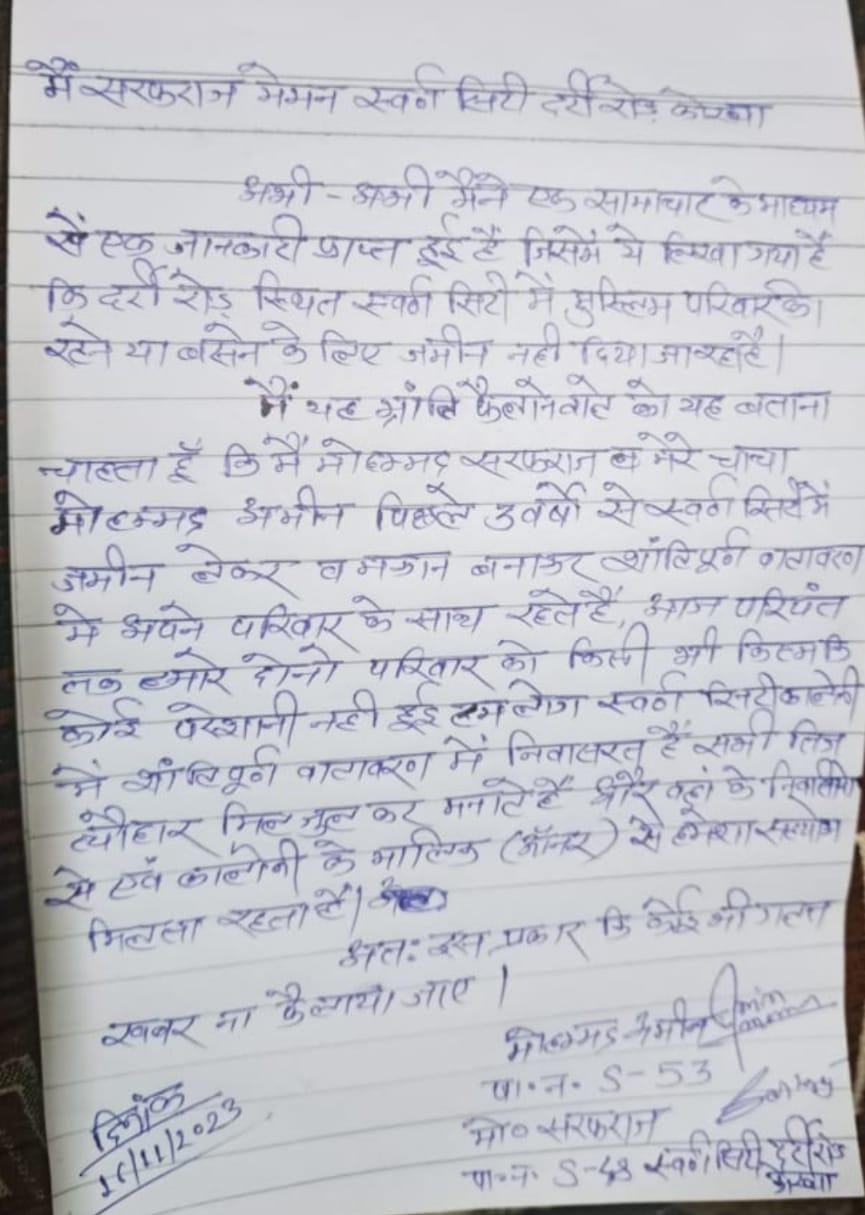 मैं सरफराज मेमन स्वर्ण सिटी दर्री रोड़ कोरबा
अभी - अभी मैंने एक सामाचार के माध्यम
से एक जानकारी प्राप्त हुई है जिसमें ये लिखा गया है
कि दर्री रोड़ स्थित स्वर्ण सिटी में मुस्लिम परिवार को
रहने या बसने के लिए जमीन नही दिया जा रहा है।
मैं यह भ्रांति फैलानेवाले को यह बताना
चाहता हूँ कि मैं मोहम्मद सरफराज व मेरे चाचा
मोहम्मद अमीन पिछले 3 वर्षो से स्वर्ण सिटी में
जमीन लेकर व मकान बनाकर शांतिपूर्ण वातावरण
मे अपने परिवार के साथ रहते हैं, आज परियंत
तक हमारे दोनो परिवार को किसी भी किस्म कि
कोई परेशानी नही हुई हम लोग स्वर्ण सिटी कालोनी
में शांतिपूर्ण वातावरण में निवासरत् हैं सभी तिज
त्यौहार मिल जुल कर मनाते हैं और वहां के निवासीयो
से एवं कालोनी के मालिक (ऑनर) से हमेशा सहयोग
मिलता रहता है।
अतः इस प्रकार कि कोई भी गलत
खबर ना फैलाया जाए।
मोहम्मद अमीन
पा॰न॰ S-53
मो० सरफराज
पा॰न॰ S-48 स्वर्ण सिटी दर्री रोड
कोरबा
दिनाँक
/11/2023